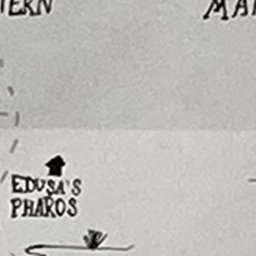 TERN MAR
EDUSA'S
PHAROS